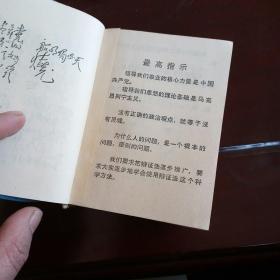 最高指示
领导我们事业的核心力量是中国
共产党。
指导我们思想的理论基础是马克
思列宁主义。
没有正确的政治观点，就等于没
有灵魂。
为什么人的问题，是一个根本的
问题，原则的问题。
我们要求把辩证法逐步推广，要
求大家逐步地学会使用辩证法这个科
学方法。